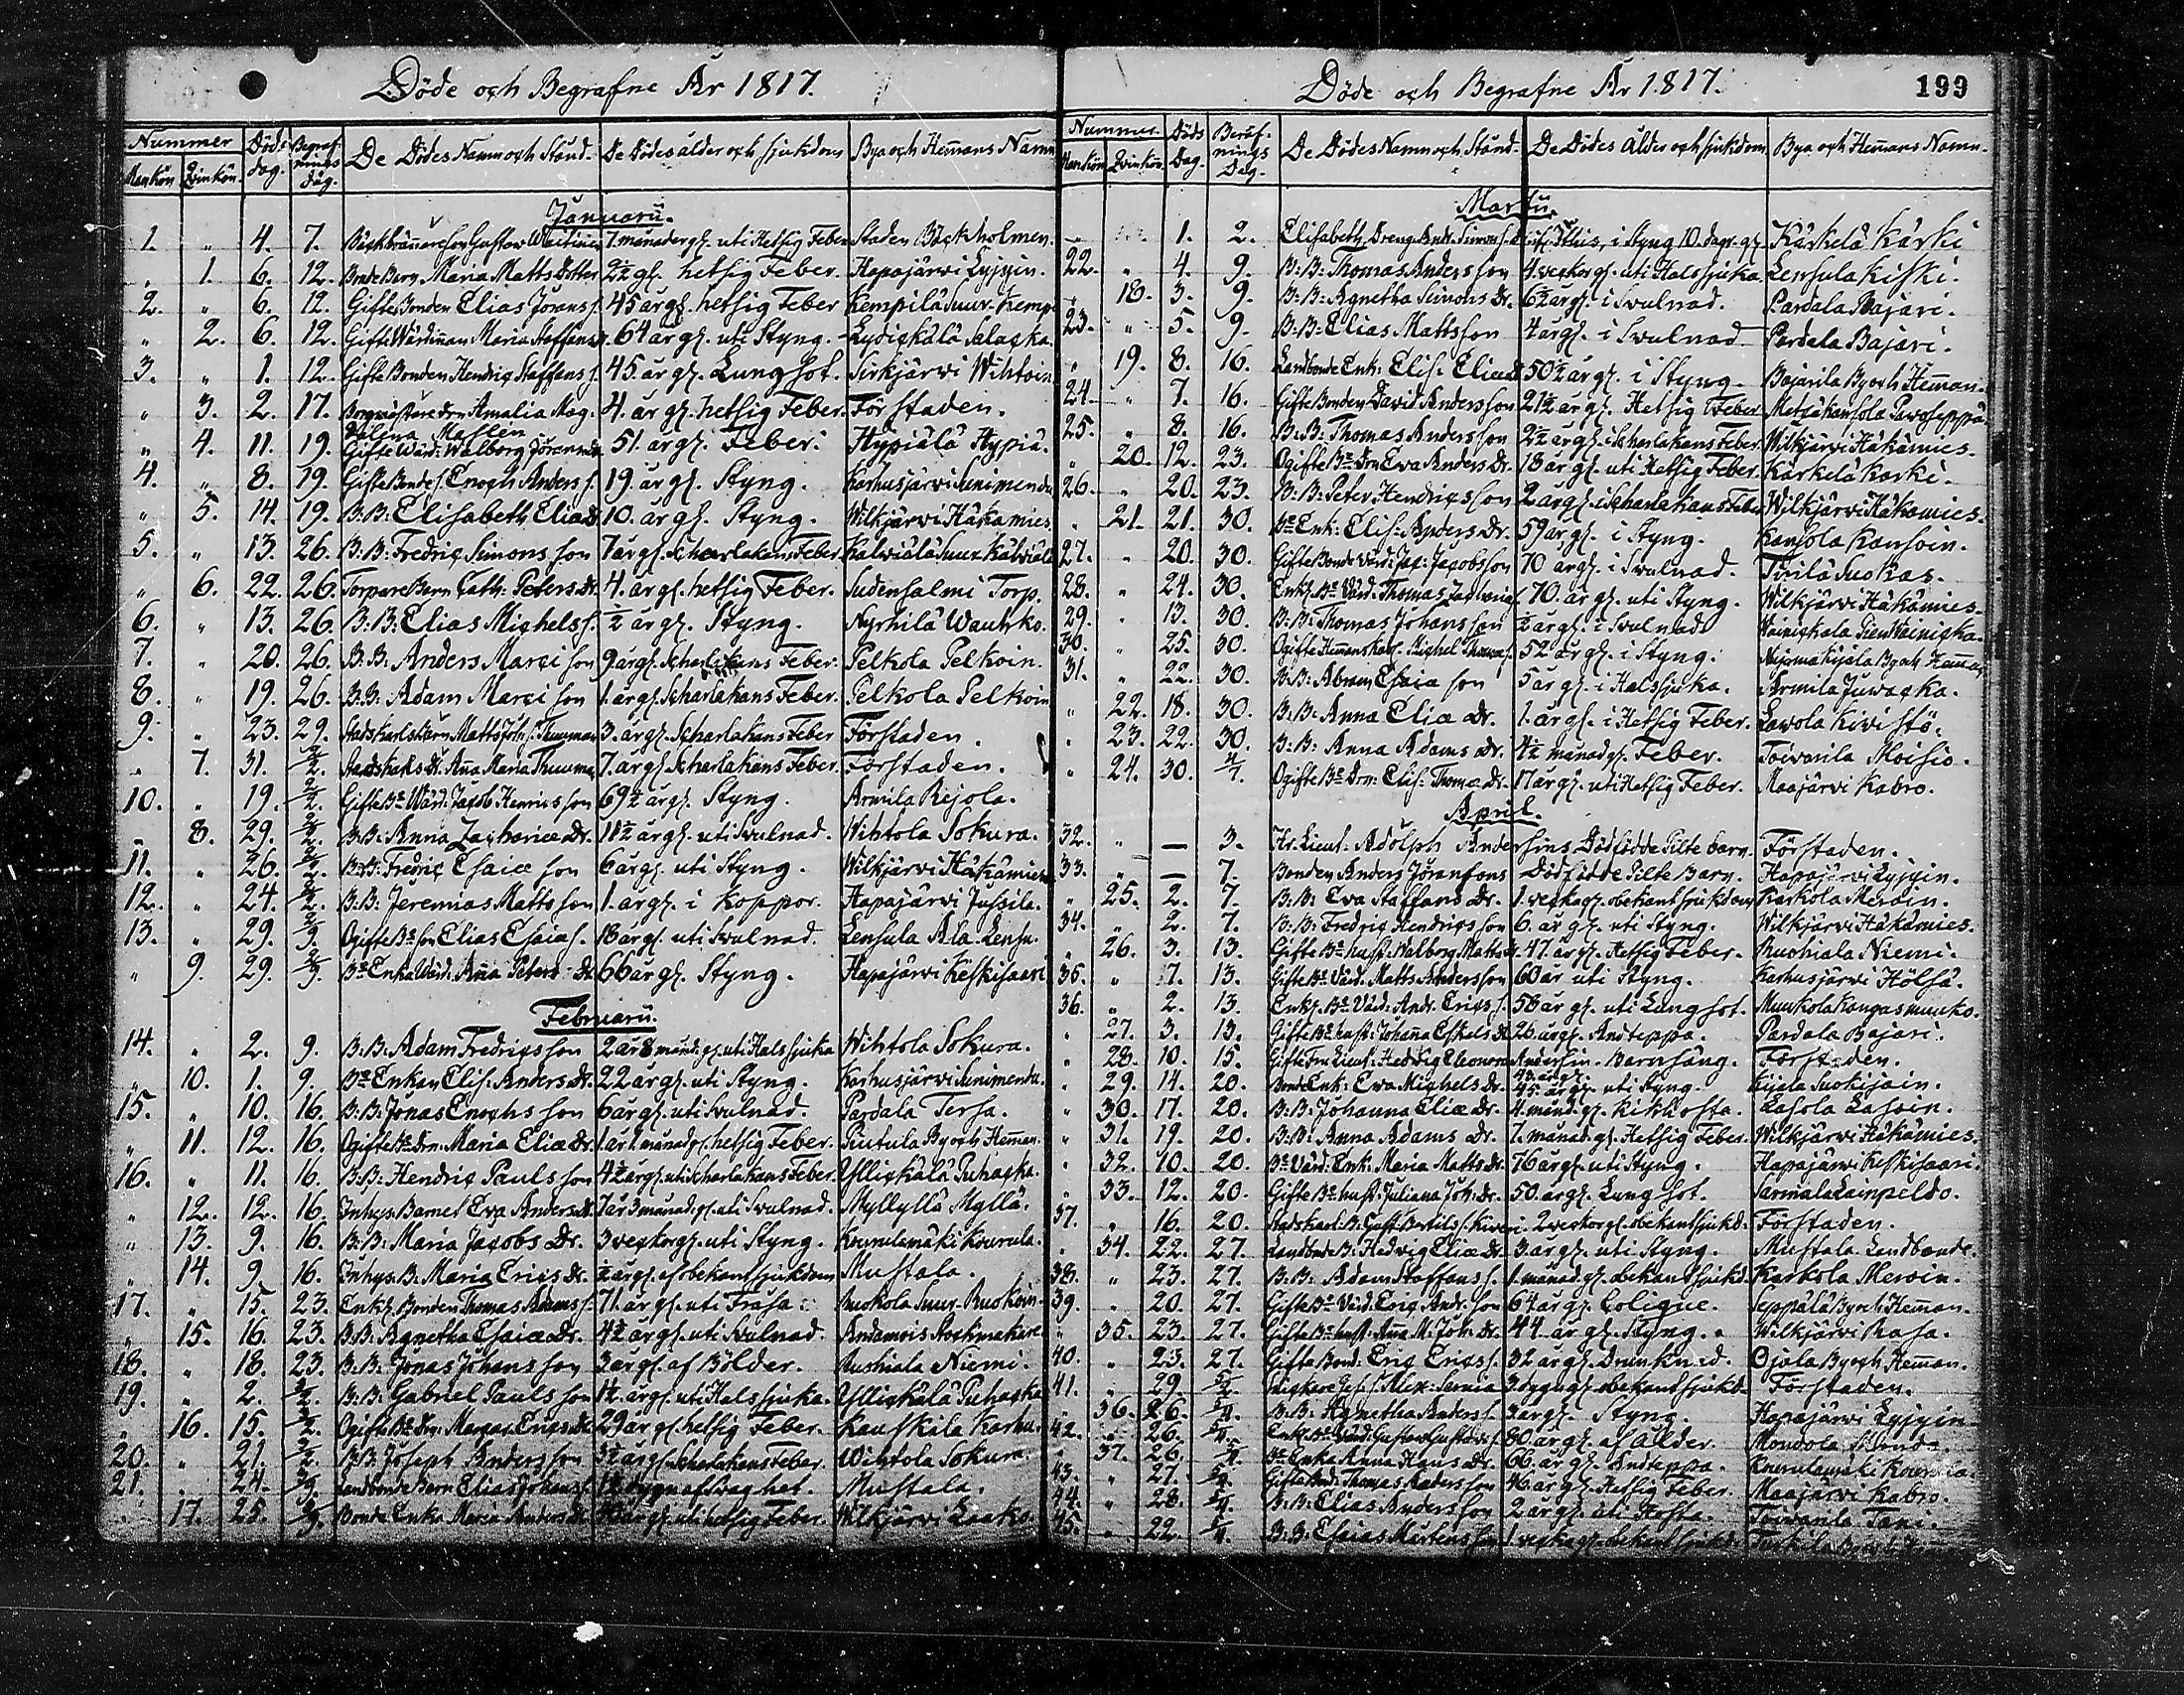 Döde och Begrafne År 1817.
Nummer Döds dag. Begrafnings dag. De Dödes Namn och Stånd. De Dödes ålder och sjukdom Bya och Hemmans Namn
Mankön Qvinkön.
Januarii.
1. " 4. 7. Gustav 7. månader gl. uti Hetsig Feber Staden Bäckholmen.
" 1. 6. 12. Bonde Barn Maria Matts Dotter 2½ gl. hetsig Feber. Hapajärvi Lyjyin.
2. " 6. 12. Gifte Bonden Elias Jörans s. 45 år gl. hetsig Feber Kempilä Suur. Kempi
" 2. 6. 12. Gifte Värdinnan Maria Staffans 64 år gl. uti Styng. Kydickälä Selacka.
3. " 1. 12. Gifte Bonden Hendric Staffans s. 45. år gl. Lungsot. Sirkjärvi Wihtoin
" 3. 2. 17. Amalia Mag. 4. år gl. hetsig Feber. För staden.
" 4. 11. 19. Gifte Wärd: Walborg Jörans 51. år gl. Feber. Hypiälä Hypiä.
4. " 8. 19. Gifte Bonde s. Enoch Anders s. 19. år gl. Styng. Karhusjärvi Sunimendu
" 5. 14. 19. B: B: Elisabeth Eliæ D. 10. år gl. Styng. Wilkjärvi Häkämies.
5. " 13. 26. B: B: Fredric Simons son 7 år gl. Scharlakans Feber. Kalwiälä Suur Kalwiälä
" 6. 22. 26. Torpare Barn Cath: Peters Dr. 4. år gl. hetsig Feber. Sudensalmi Torp.
6. " 13. 26. B: B: Elias Michels s. ½ år gl. Styng. Nyrhilä Wauhko.
7. " 20. 26. B: B: Anders Marci son 9 år gl. Scharlakans Feber. Pelkola Pelkoin.
8. " 19. 26. B: B: Adam Marci son 1. år gl. Scharlakans Feber. Pelkola Pelkoin
9. " 23. 29. Stadskarls Barn Matts Joh: s. Thurman 3. år gl. Scharlakans Feber Förstaden.
" 7. 31. 2/2. Stadskarls D. Anna Maria Thurman 7. år gl. Scharlakans Feber. Förstaden.
10. " 19. 2/2. Gifte Be Wärd: Jacob Henrics son 69½ år gl. Styng. Armila Rejola.
" 8. 29. 2/2. B: B: Anna Zachariæ Dr. 11½ år gl. uti Svulnad. Wihtola Sokura.
11. " 26. 2/2. B: B: Fredric Esaiæ son 6 år gl. uti Styng. Wilkjärvi Häkämies
12. " 24. 2/2. B: B: Jeremias Matts son 1. år gl. i Koppor. Hapajärvi Jussila.
13. " 29. 2/9. Ogifte Be son Elias Esaiæ s. 18 år gl. uti Svulnad. Lensula Ala Lensu.
" 9. 29. 2/9. Be Enka Wärd: Anna Peters Dr. 66 år gl. Styng. Hapajärvi Keskisaari
Februarii.
14. " 2. 9. B: B: Adam Fredrics son 2 år 8 månd: gl. uti Halssjuka Wihtola Sokura.
" 10. 1. 9. Be Enkan Elis. Anders Dr. 22 år gl. uti Styng. Karhusjärvi Sunimendu.
15. " 10. 16. B: B: Jonas Enochs son 6 år gl. uti Svulnad. Pardala Tersa.
" 11. 12. 16. Ogifte Be Drn: Maria Eliæ Dr. 1. år 1. månad gl. hetsig Feber. Piutula By och Heman.
16. " 11. 16. B: B: Hendric Pauls son 4½ år gl. uti Scharlakans Feber. Yllickälä Puhacka.
" 12. 12. 16. Inhys. Barnet Eva Anders Dr. 7 år 3 månad: gl. uti Svulnad. Myllyllä Myllä.
" 13. 9. 16. B: B: Maria Jacobs Dr. 3 veckor gl. uti Styng. Kourulamäki Kourula.
" 14. 9. 16. Inhys. B: Maria Erics Dr. ½ år gl. af obekant sjukdom Mustala.
17. " 15. 23. Enkl. Bonden Thomas Adams s. 71. år gl. uti Frasa. Ruokola Suur Ruokoin.
" 15. 16. 23. B: B: Agnetha Esaiæ Dr. 4½ år gl. uti Svulnad. Andamois Rockmakare
18. " 18. 23. B: B: Jonas Johans son 3 år gl. af Bölder. Ruohiala Niemi.
19. " 2. 2/2. B: B: Gabriel Pauls son 1½ år gl. uti Halssjuka. Yllickälä Puhacka
" 16. 15. 2/2. Ogifte Be Dr: Margar. Erics Dr. 29 år gl. hetsig Feber. Kauskila Karhu.
20. " 21. 2/2. B: B: Joseph Anders son 3½ år gl. Scharlakans Feber. Wihtola Sokura.
21. " 24. 3/9. Landbonde Barn Elias Johans s. 1½ dygn af Svaghet. Mustala.
" 17. 25. 3/9. Bonde Enka Maria Anders Dr. år gl. uti hetsig Feber. Wilkjärvi Laako.
Döde och Begrafne År 1817. 199
Nummer Döds Dag. Begrafnings Dag. De Dödes Namn och Stånd. De Dödes Ålder och sjukdom Bya och Hemans Namn.
Mankön Qvinkön
Martii.
" 1. 2. Elisabeth Dreng Andr. Simons i Styng 10. dagr. gl. Kärkelä Kärki
22. " 4. 9. B: B: Thomas Anders son 4. veckor gl. uti Halssjuka. Lensula Kiski.
" 18. 3. 9. B: B: Agnetha Simons Dr. 6½ år gl. i Svulnad. Pardala Bajari.
23. " 5. 9. B: B: Elias Matts son 4 år gl. i Svulnad Pardala Bajari.
" 19. 8. 16. Landbonde Enk: Elis. Eliæ Dr. 50½ år gl. i Styng. Bajarila By och Heman.
24. " 7. 16. Gifte Bonden David Anders son 21½ år gl. Hetsig Feber Metsäkansola Pavoseppä.
25. " 8. 16. B: B: Thomas Anders son 2½ år gl. i Scharlakans Feber. Wilkjärvi Häkämies.
" 20. 12. 23. Ogifte Be Drn Eva Anders Dr. 18 år gl. uti Hetsig Feber. Kärkelä Kärki.
26. " 20. 23. B: B: Peter Hendrics son 2 år gl. i Scharlakans Feber Wilkjärvi Häkämies.
" 21. 21. 30. Be Enk: Elis. Anders Dr. 59 år gl. i Styng. Kansola Kansoin.
27. " 20. 30. Gifte Bonde Värd: Jac: Jacobs son 70 år gl. i Svulnad. Tiuruniemi
28. " 24. 30. Enkl. Be Värd: Thomas Zachariæ 70. år gl. uti Styng. Wilkjärvi Häkämies.
29. " 13. 30. B: B: Thomas Johans son ½ år gl. i Svulnad. Wainickala Pien Wainicka.
30. " 25. 30. Ogifte Hemmans Karl. Michel Thomæ s. 52 år gl. i Styng. By och Heman
31. " 22. 30. B: B: Abram Esaiæ son 5 år gl. i Halssjuka. Armila Juvacka.
" 22. 18. 30. B: B: Anna Eliæ Dr. 1. år gl. i Hetsig Feber. Lavola Kivistö.
" 23. 22. 30. B: B: Anna Adams Dr. 4½ månad gl. Feber. Toivarila Moisio.
" 24. 30. 4/7. Ogifte Be Drn: Elis. Thomæ Dr. 17 år gl. uti Hetsig Feber. Maajärvi Kabro.
April.
32. " — 3. Hr. Lieut. Adolph Andersins Dödfödde Pilte barn. Förstaden.
33. " — 7. Bonden Anders Joransons Dödfödde Pilte Barn. Hapajärvi Lyjyin.
" 25. 2. 7. B: B: Eva Staffans Dr. 1. vecka gl. obekant sjukdom Karkola Meroin.
34. " 2. 7. B: B: Fredric Hendrics son 6. år gl. uti Styng. Wilkjärvi Häkämies.
" 26. 3. 13. Gifte Be hust. Walborg Matts Dr. 47. år gl. Hetsig Feber. Ruohiala Niemi.
35. " 7. 13. Gifte Be Värd. Matts Anders son 60 år uti Styng. Karhusjärvi Hölsä.
36. " 2. 13. Enkl. Be Värd. Andr. Erics s. 58 år gl. uti Lungsot. Muukola Kangasmuuko.
" 27. 3. 13. Gifte Be hust. Johanna Eskels Dr. 26. år gl. Andteppa. Pardala Bajari.
" 28. 10. 15. Gifte Fru Lieut. Hedvig Eleonora Andersin. Barnsäng. Förstaden.
" 29. 14. 20. Bonde Enk: Eva Michels Dr. 45. år gl. uti Styng. Kijala Suokijain.
" 30. 17. 20. B: B: Johanna Eliæ Dr. 4. månd. gl. Kikhosta. Lasola Lasoin.
" 31. 19. 20. B: B: Anna Adams Dr. 7. månad. gl. Hetsig Feber. Wilkjärvi Häkämies.
" 32. 10. 20. Be Värd: Enk: Maria Matts Dr. 76 år gl. uti Styng. Hapajärvi Keskisaari.
" 33. 12. 20. Gifte Be hust. Juliana Joh: Dr. 50. år gl. Lungsot. Sarmala Lainpeldo.
37. " 16. 20. Stadskarl: B: Gust. Bertils s. 2 veckor gl. obekant sjukd. Förstaden.
" 34. 22. 27. Landbonde B: Hedvig Eliæ Dr. 3 år gl. uti Styng. Mustala Landbonde.
38. " 23. 27. B: B: Adam Staffans s. 1. månad. gl. obekant sjukd. Karkola Meroin.
39. " 20. 27. Gifte Be Värd. Eric Andr. son 64 år gl. Colique. Seppälä By och Heman.
" 35. 23. 27. Gifte Be hust. Anna M. Joh: Dr. 44. år gl. Styng. Wilkjärvi Rasa.
40. " 23. 27. Gifte Bond. Eric Erics s. 32 år gl. Drunknad. Ojala By och Heman.
41. " 29. 5/2. Alex: 3. dygn gl. obekant sjukd. Förstaden.
" 36. 26. 5/4. B: B: Agnetha Anders s. 3 år gl. Styng. Hapajärvi Lyjyin
42. " 26. 5/4. Enkl. Be Värd: Gustav Gustavs s. 80 år gl. af Ålder. Mondola
" 37. 26. 5/4. Be Enka Anna Hans Dr. 66. år gl. Andteppa. Kourulamäki Kourula.
43. " 27. 5/4. Gifte Bond. Thomas Anders son 46 år gl. Hetsig Feber. Maajärvi Kabro.
44. " 28. 5/4. B: B: Elias Anders son 2 år gl. uti Hosta. Toivarila Tani.
45. " 22. 5/4. B: B: Esaias Mårtens son 1. vecka gl. obekant sjukd.